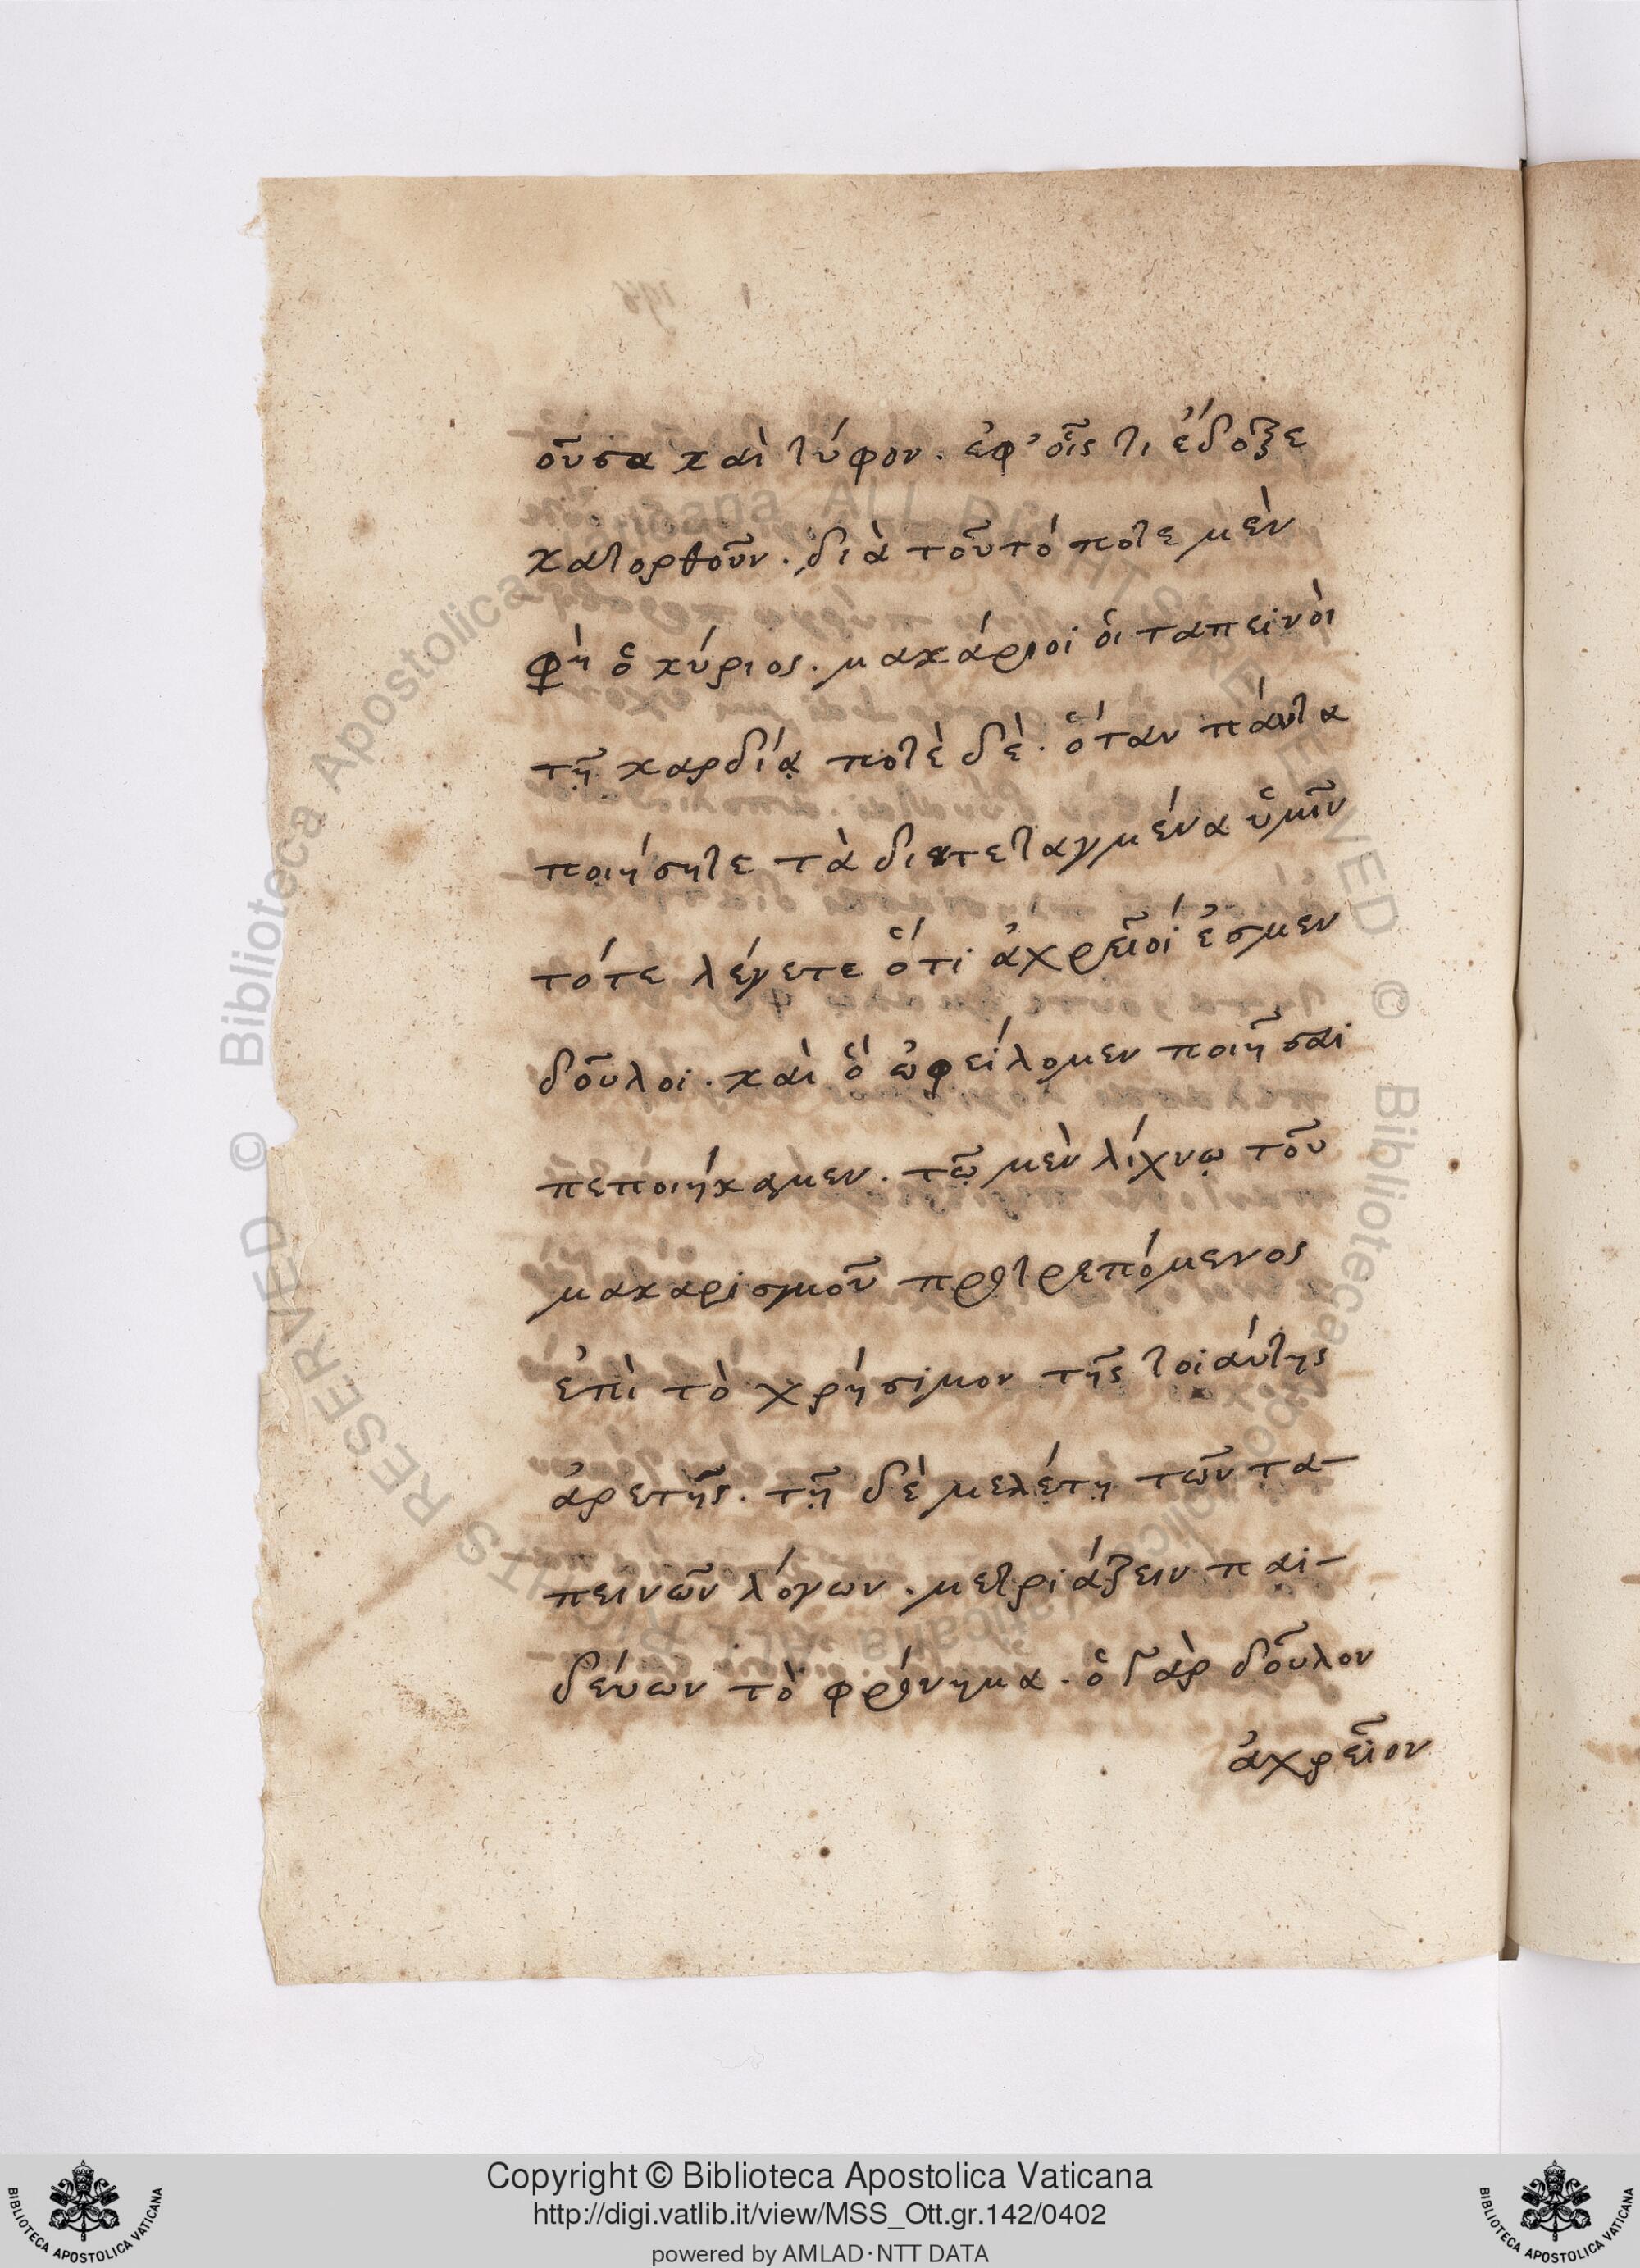 οὖσα καὶ τύφον. ἐφ' οἷς τι ἔδοξε
κατορθοῦν. διὰ τοῦτό ποτε μὲν
φὴ ὁ κύριος. μακάριοι ὁι ταπεινὸι
τῇ καρδίᾳ ποτὲ δὲ. ὅταν πάντα
ποιήσητε τὰ διατεταγμένα ὑμῖν
τότε λέγετε ὅτι ἀχρεῖοί ἐσμεν
δοῦλοι. καὶ ὅ ὠφείλομεν ποιῆσαι
πεποιήκαμεν. τῷ μὲν λίχνῳ τοῦ
μακαρισμοῦ προτρεπόμενος
ἐπὶ τὸ χρήσιμον τῆς τοιάυτης
ἀρετῆς. τῇ δὲ μελέτῃ τῶν τα-
πεινῶν λόγων. μετριάζειν παι-
δέυων τὸ φρόνημα. ὁ γὰρ δοῦλον
ἀχρεῖον
Copyright © Biblioteca Apostolica Vaticana
http://digi.vatlib.it/view/MSS_Ott.gr.142/0402
powered by AMLAD·NTT DATA
BIBLIOTECA APOSTOLICA VATICANA
BIBLIOTECA APOSTOLICA VATICANA